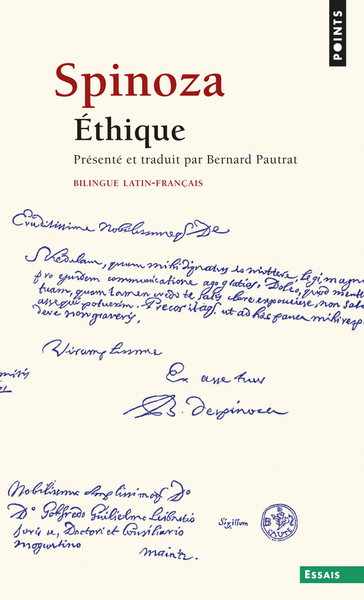 POINTS
Spinoza
Éthique
Présenté et traduit par Bernard Pautrat
BILINGUE LATIN-FRANÇAIS
Eruditissime Nobilissimeq̃ De
Schedulam, quam mihi dignatus es mittere, legi, magnas
pro ejusdem communicatione ago gratias, Doleo, quod mentem
tuam, quam tamen credo te satis clare exposuisse, non satis
assequi potuerim. Precor itaq̃ ut ad hæc pauca mihi resp
deve non graveris.
Ex asse tuus
B. despinoza
Nobilissime Amplissimoq̃ Dº
Dº Gotfredo Guilielmo Leibnitio
Juris u, Doctori et Consiliario
moguntino
maintz
Sigillum
ESSAIS